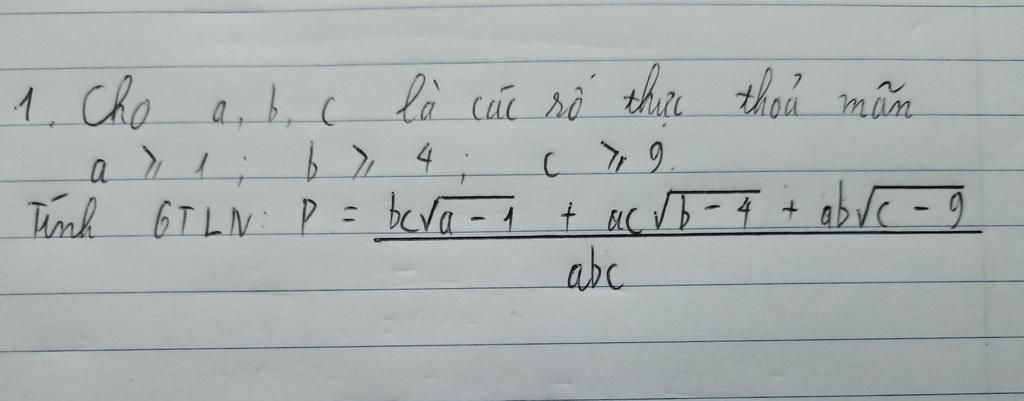 1. Cho a, b, c là các số thực thoả mãn
a ⩾ 1 ; b ⩾ 4 ; c ⩾ 9.
Tính GTLN: P = \frac{bc\sqrt{a-1} + ac\sqrt{b-4} + ab\sqrt{c-9}}{abc}